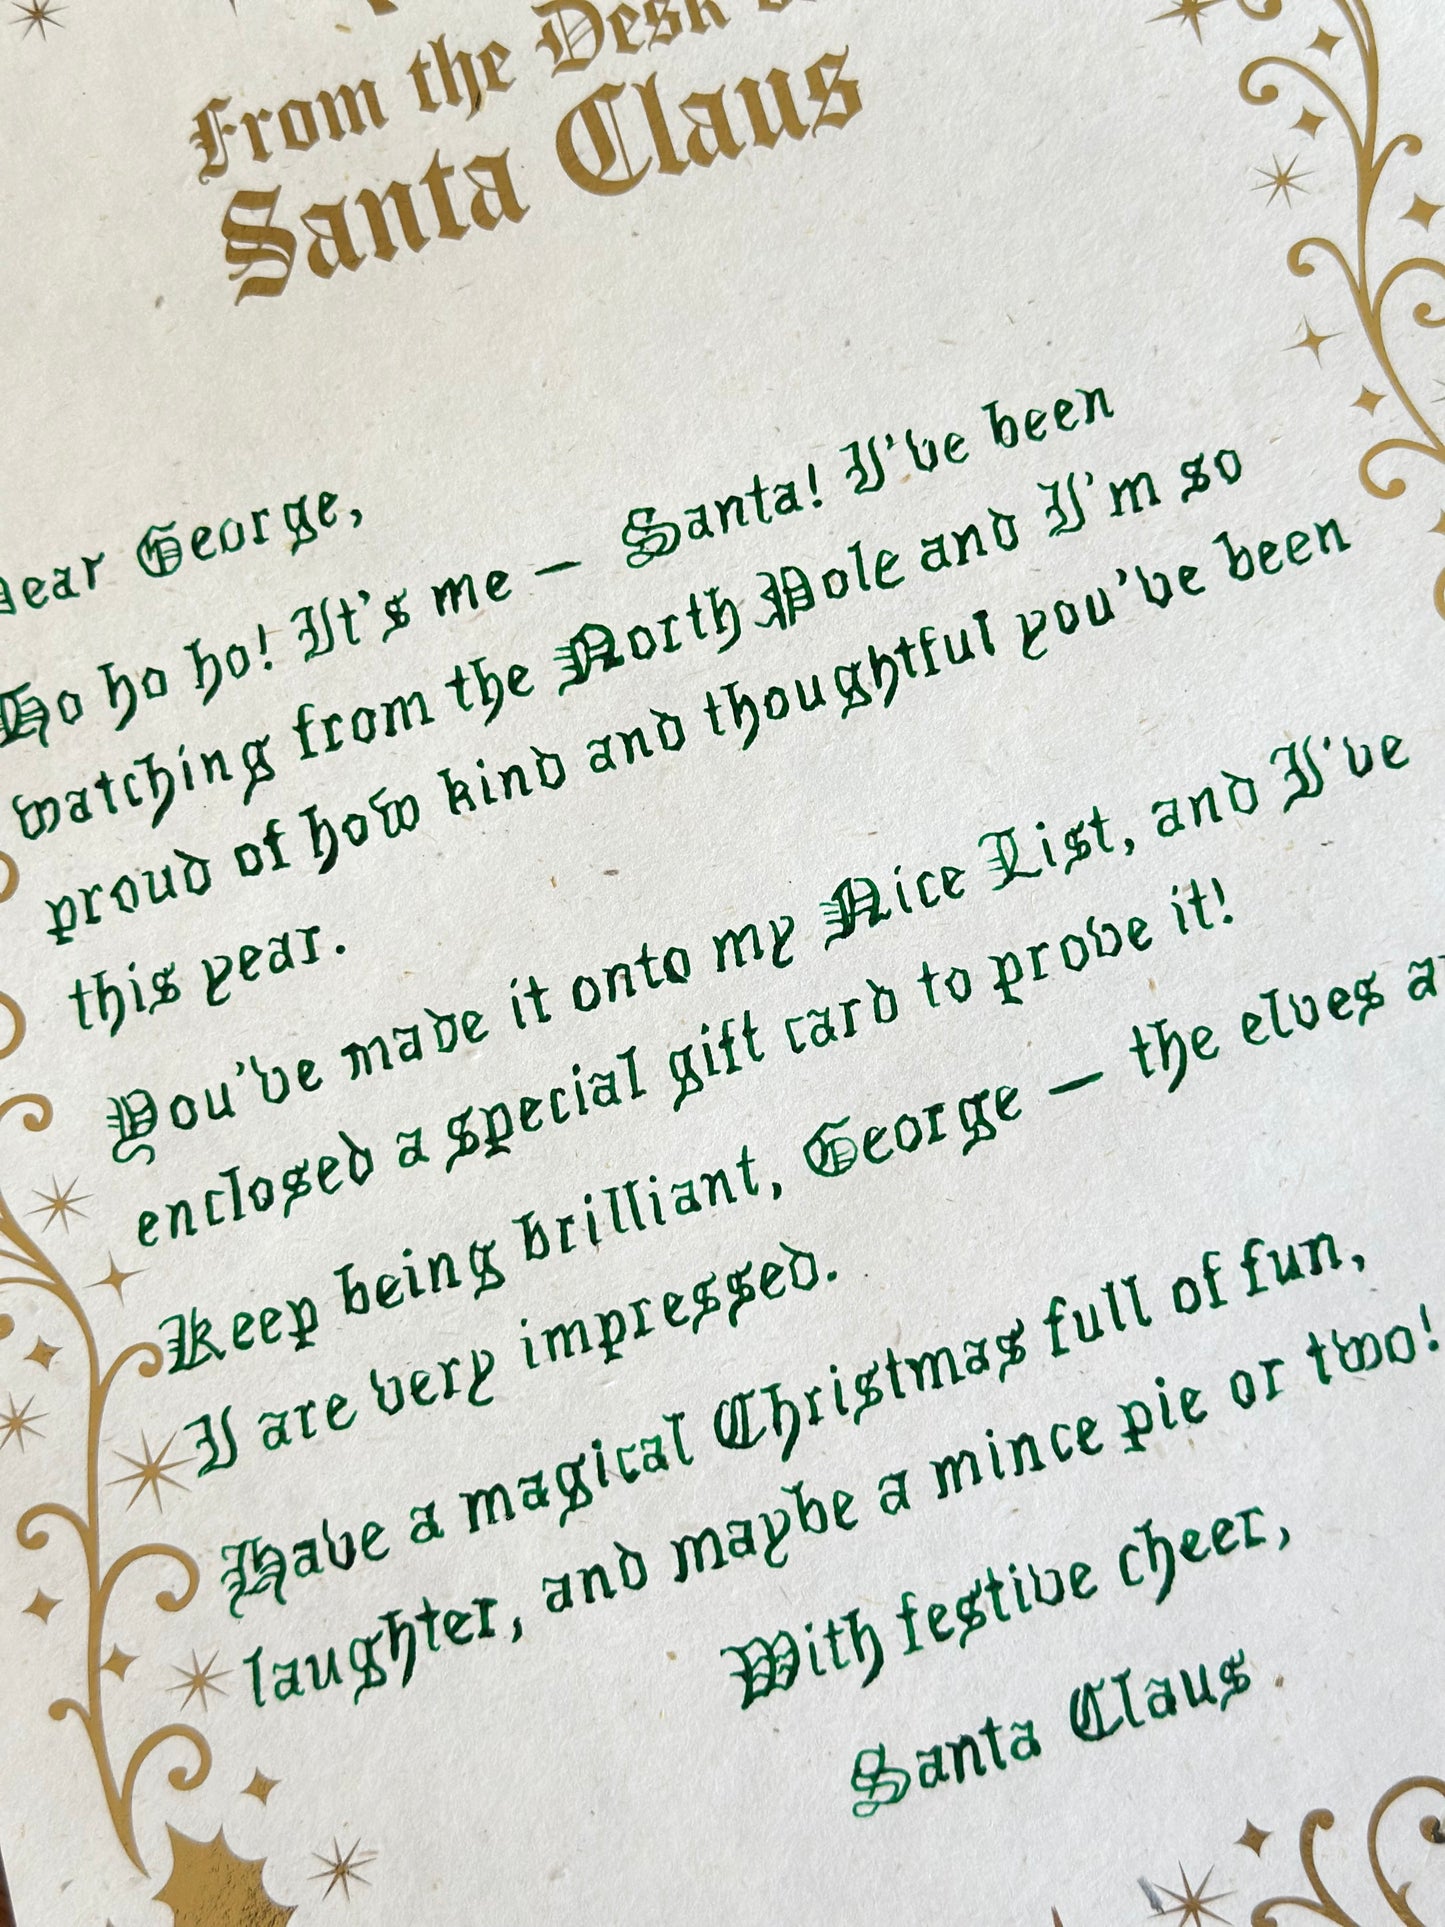 From the Desk
Santa Claus
Dear George,
Ho ho ho! It's me — Santa! I've been
watching from the North Pole and I'm so
proud of how kind and thoughtful you've been
this year.
You've made it onto my Nice List, and I've
enclosed a special gift card to prove it!
Keep being brilliant, George — the elves
I are very impressed.
Have a magical Christmas full of fun,
laughter, and maybe a mince pie or two!
With festive cheer,
Santa Claus